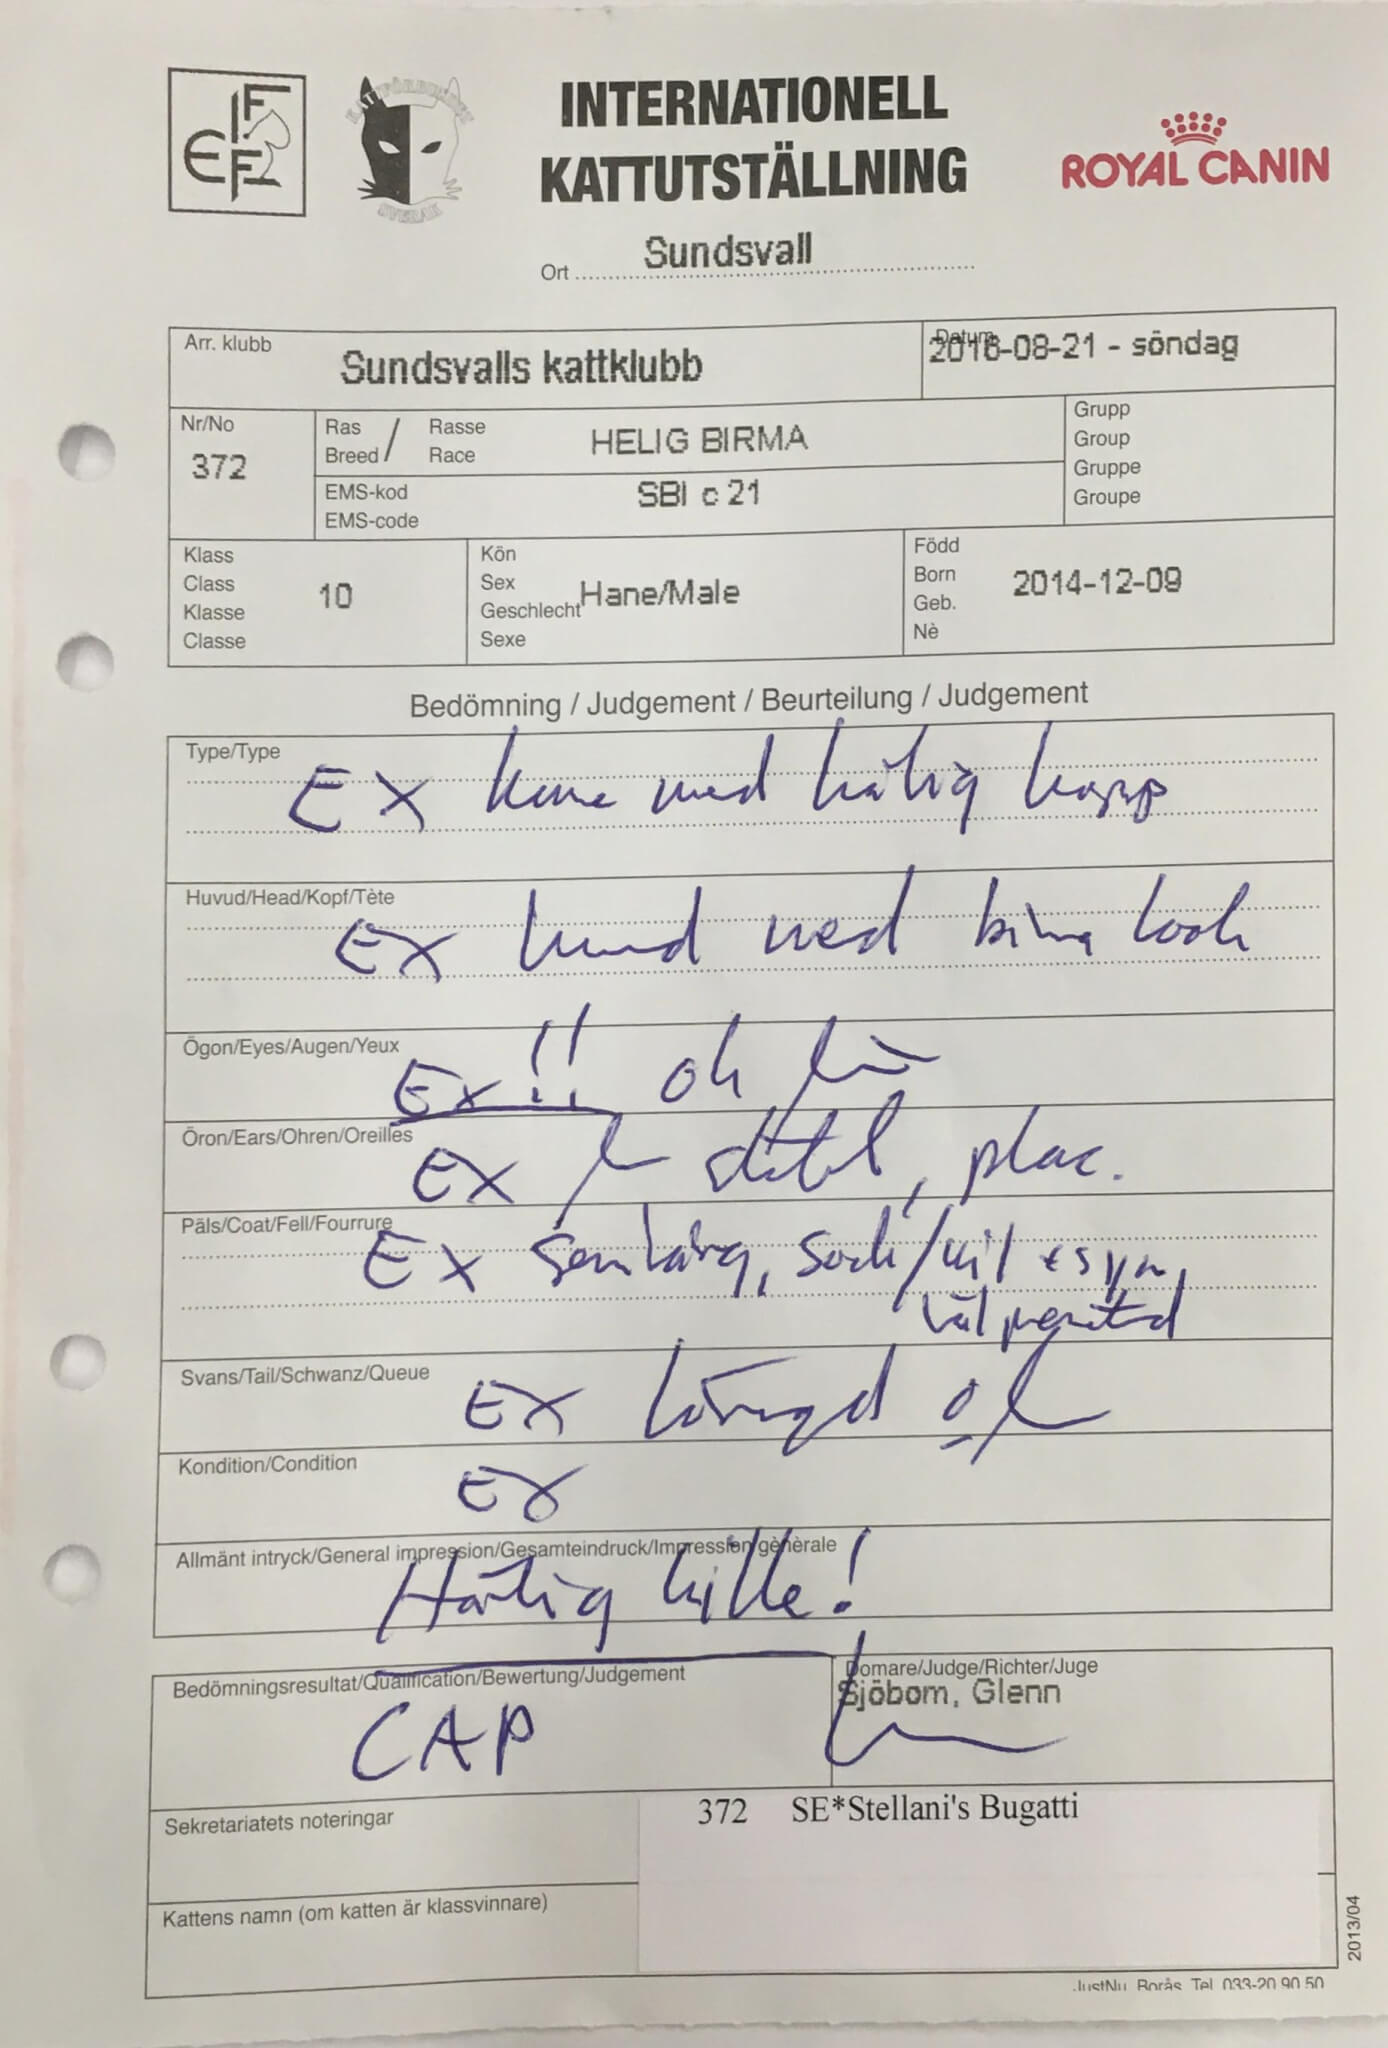 FIFE
KATTFÖRBUNDET
SVERAK
INTERNATIONELL
KATTUTSTÄLLNING
ROYAL CANIN
Ort Sundsvall
Arr. klubb
Sundsvalls kattklubb
Datum
2016-08-21 - söndag
Nr/No
372
Ras / Rasse
Breed / Race
HELIG BIRMA
EMS-kod
EMS-code
SBI c 21
Grupp
Group
Gruppe
Groupe
Klass
Class
Klasse
Classe
10
Kön
Sex
Geschlecht
Sexe
Hane/Male
Född
Born
Geb.
Nè
2014-12-09
Bedömning / Judgement / Beurteilung / Judgement
Type/Type
EX hane med härlig kropp
Huvud/Head/Kopf/Tète
EX huvud med birma look
Ögon/Eyes/Augen/Yeux
Ex!! och
Öron/Ears/Ohren/Oreilles
EX storl, plac.
Päls/Coat/Fell/Fourrure
EX
väl
Svans/Tail/Schwanz/Queue
EX längd o
Kondition/Condition
EX
Allmänt intryck/General impression/Gesamteindruck/Impression gènèrale
Härlig kille!
Bedömningsresultat/Qualification/Bewertung/Judgement
CAP
Domare/Judge/Richter/Juge
Sjöbom, Glenn
Sekretariatets noteringar
372 SE*Stellani's Bugatti
Kattens namn (om katten är klassvinnare)
2013/04
JustNu, Borås, Tel. 033-20 90 50